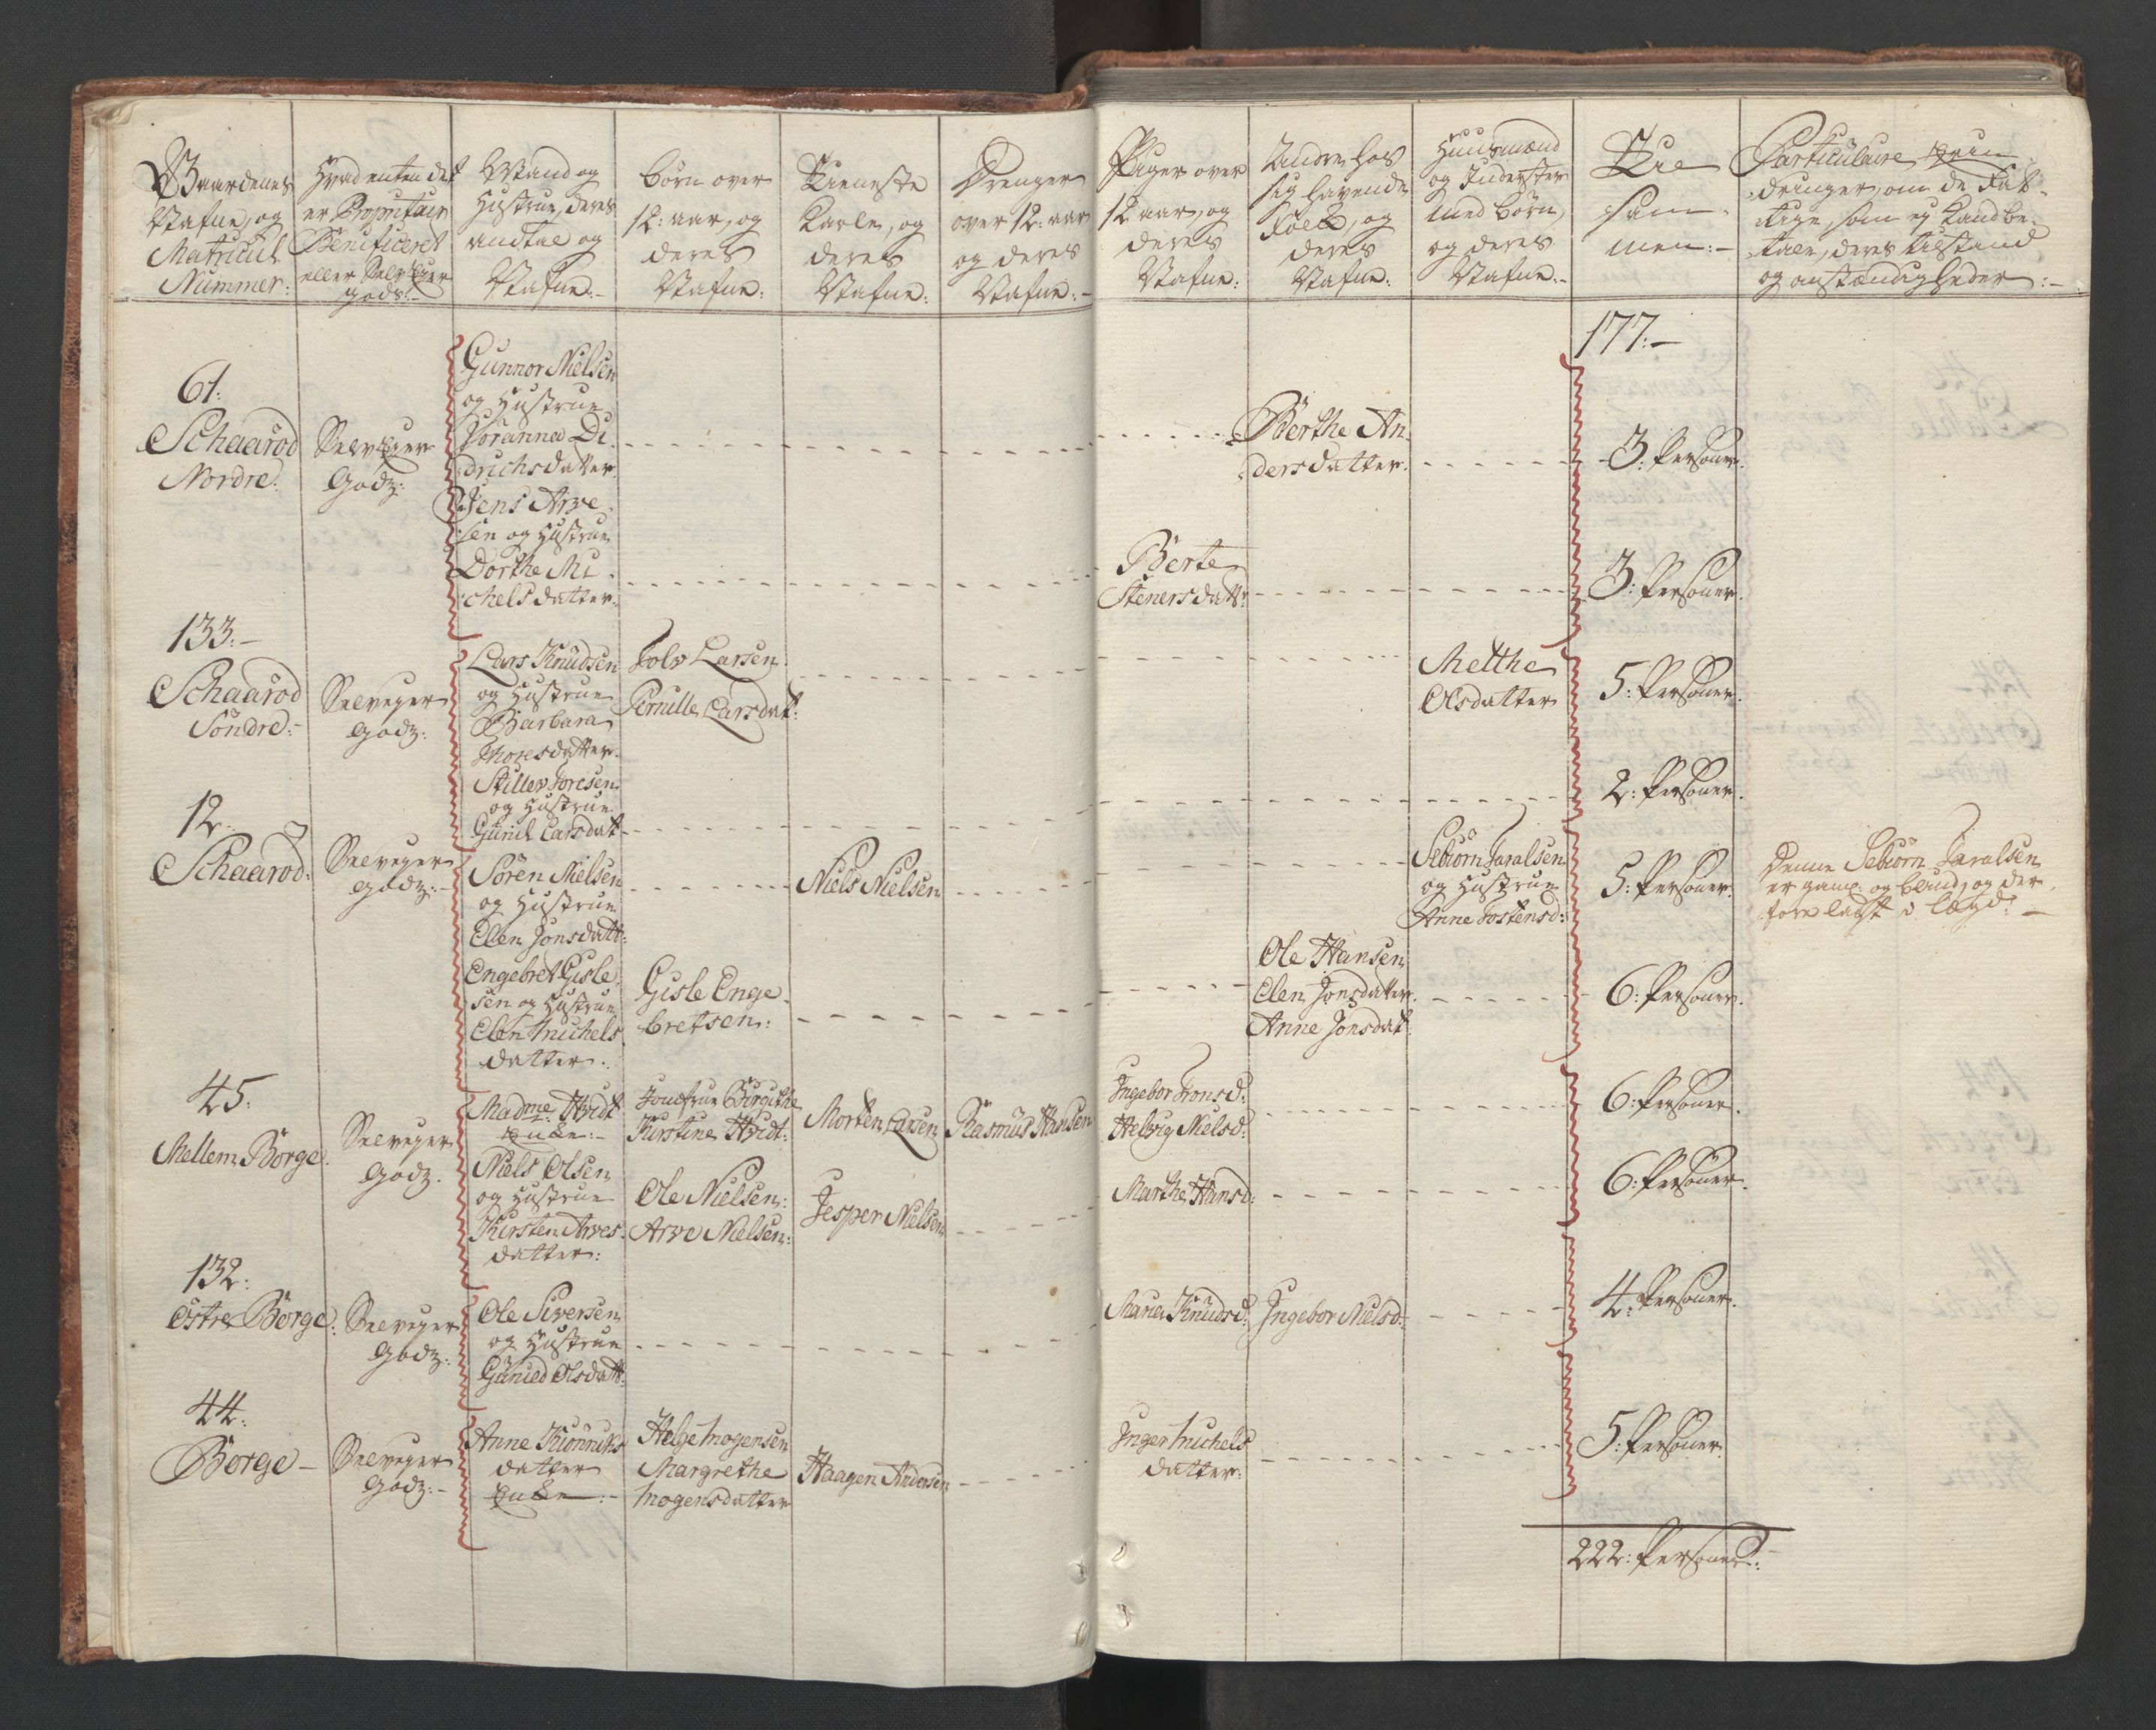 Gaardenes
Nafne, og
Matricul
Nummer:
Hvad enten det
er Propritair
Beneficeret
eller Selv Eÿer
gods:-
Mand og
Hustrue, deres
andtal og
Nafne:-
Børn over
12: aar, og
deres
Nafne:
Tieneste
Karle, og
deres
Nafne:
Drenger
over 12: aar
og deres
Nafne:-
Piger over
12 aar, og
deres
Nafne:
Andre hos
sig havende
Folk, og
deres
Nafne:
Huusmænd
og Inderster
med børn,
og deres
Nafne:-
Til
sam-
men:-
Particulaire
dringer, om de Fat-
tige, som ej kand be-
tale, deres tilstand
og omstændigheder:-
177:-
61:
Schaarød
Nordre:
Selv Eyer
Godz:
Gunnor Nielsen
og Hustrue
Joranna Di-
drichsdatter
Berthe An-
dersdatter.
3: Personer.
Jens Arve-
sen og Hustrue
Dorthe Mi-
chelsdatter:
Berte
Stenersdatt:
3: Personer.
133:-
Schaarød
Söndre:-
Selveyer
Godz:
Lars Knudsen
og Hustrue
Barbara
Thoresdatter.
Tolv Larsen
Pernille Larsdat:
Melthe
Olsdatter
5: Personer.
Stiller Toresen
og Hustrue
Gunil Larsdat
2: Personer.
12.
Schaarød:
Selveyer
Godz:-
Sören Nielsen
og Hustrue
Elen Jonsdatt:
Niels Nielsen
Sebiörn Taralsen
og Hustrue
Anne Tostensd:
5: Personer.
Denne Sebiörn Taralsen
er gaml: og blind, og der-
fore lagt i lægd:-
Engebret Gisle-
sen og Hustrue
Elen Michels
datter:
Gisle Enge-
bretsen:
Ole Hansen
Elen Jonsdatter.
Anne Jonsdat:
6: Personer.
45.
Mellem Börge.
Selveyer
Godz.
Madme Hvidt
Enke:-
Jomfrue Birgithe
Kirstine Hvidt:
Morten Larsen
Rasmus Hansen
Ingebor Tronsd:
Helvig Nielsd:
6: Personer.
Niels Olsen
og Hustrue
Kirsten Arves-
datter:
Ole Nielsen:
Arve Nielsen:
Jesper Nielsen
Marthe Hansd:
6: Personer.
132:
Östre Börge:
Selveyer
Godz:
Ole Siversen
og Hustrue
Gunild Olsdatt:
Maria Knudsd:
Ingebor Nielsd:
4: Personer.
44:
Börge-
Selveyer
Godz:-
Anne Kiönniks
datter
Enke:-
Helge Mogensen
Margrethe
Mogensdatter
Haagen Andersen
Inger Michels
datter:
5: Personer.
222: Personer:-